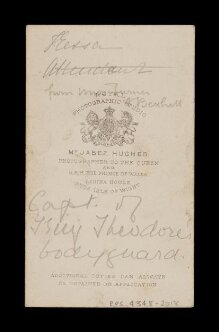 Attendant
from Mrs Turner
PHOTOGRAPHIC
MR JABEZ HUGHES
PHOTOGRAPHER TO THE QUEEN
AND
H.R.H. THE PRINCE OF WALES
REGINA HOUSE
RYDE ISLE OF WIGHT
Capt. of
King Theodore's
bodyguard.
ADDITIONAL COPIES CAN ALWAYS
BE OBTAINED ON APPLICATION